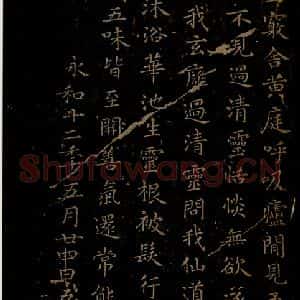 竅舍黃庭呼吸廬間見吾
不見過清靈恬惔無欲
我玄膺過清靈問我仙道
沐浴華池生靈根被髮行
五味皆至開善氣還常能
永和十二年五月廿四日
Shufawang.CN